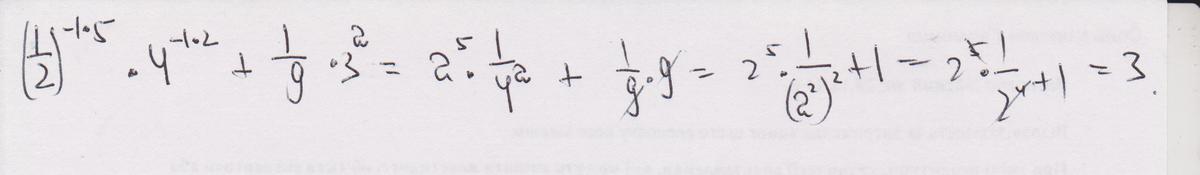 (1/2)^{-1·5} · 4^{-1·2} + 1/9 · 3^2 = 2^5 · 1/4^2 + 1/9 · 9 = 2^5 · 1/(2^2)^2 + 1 = 2^5 · 1/2^4 + 1 = 3.